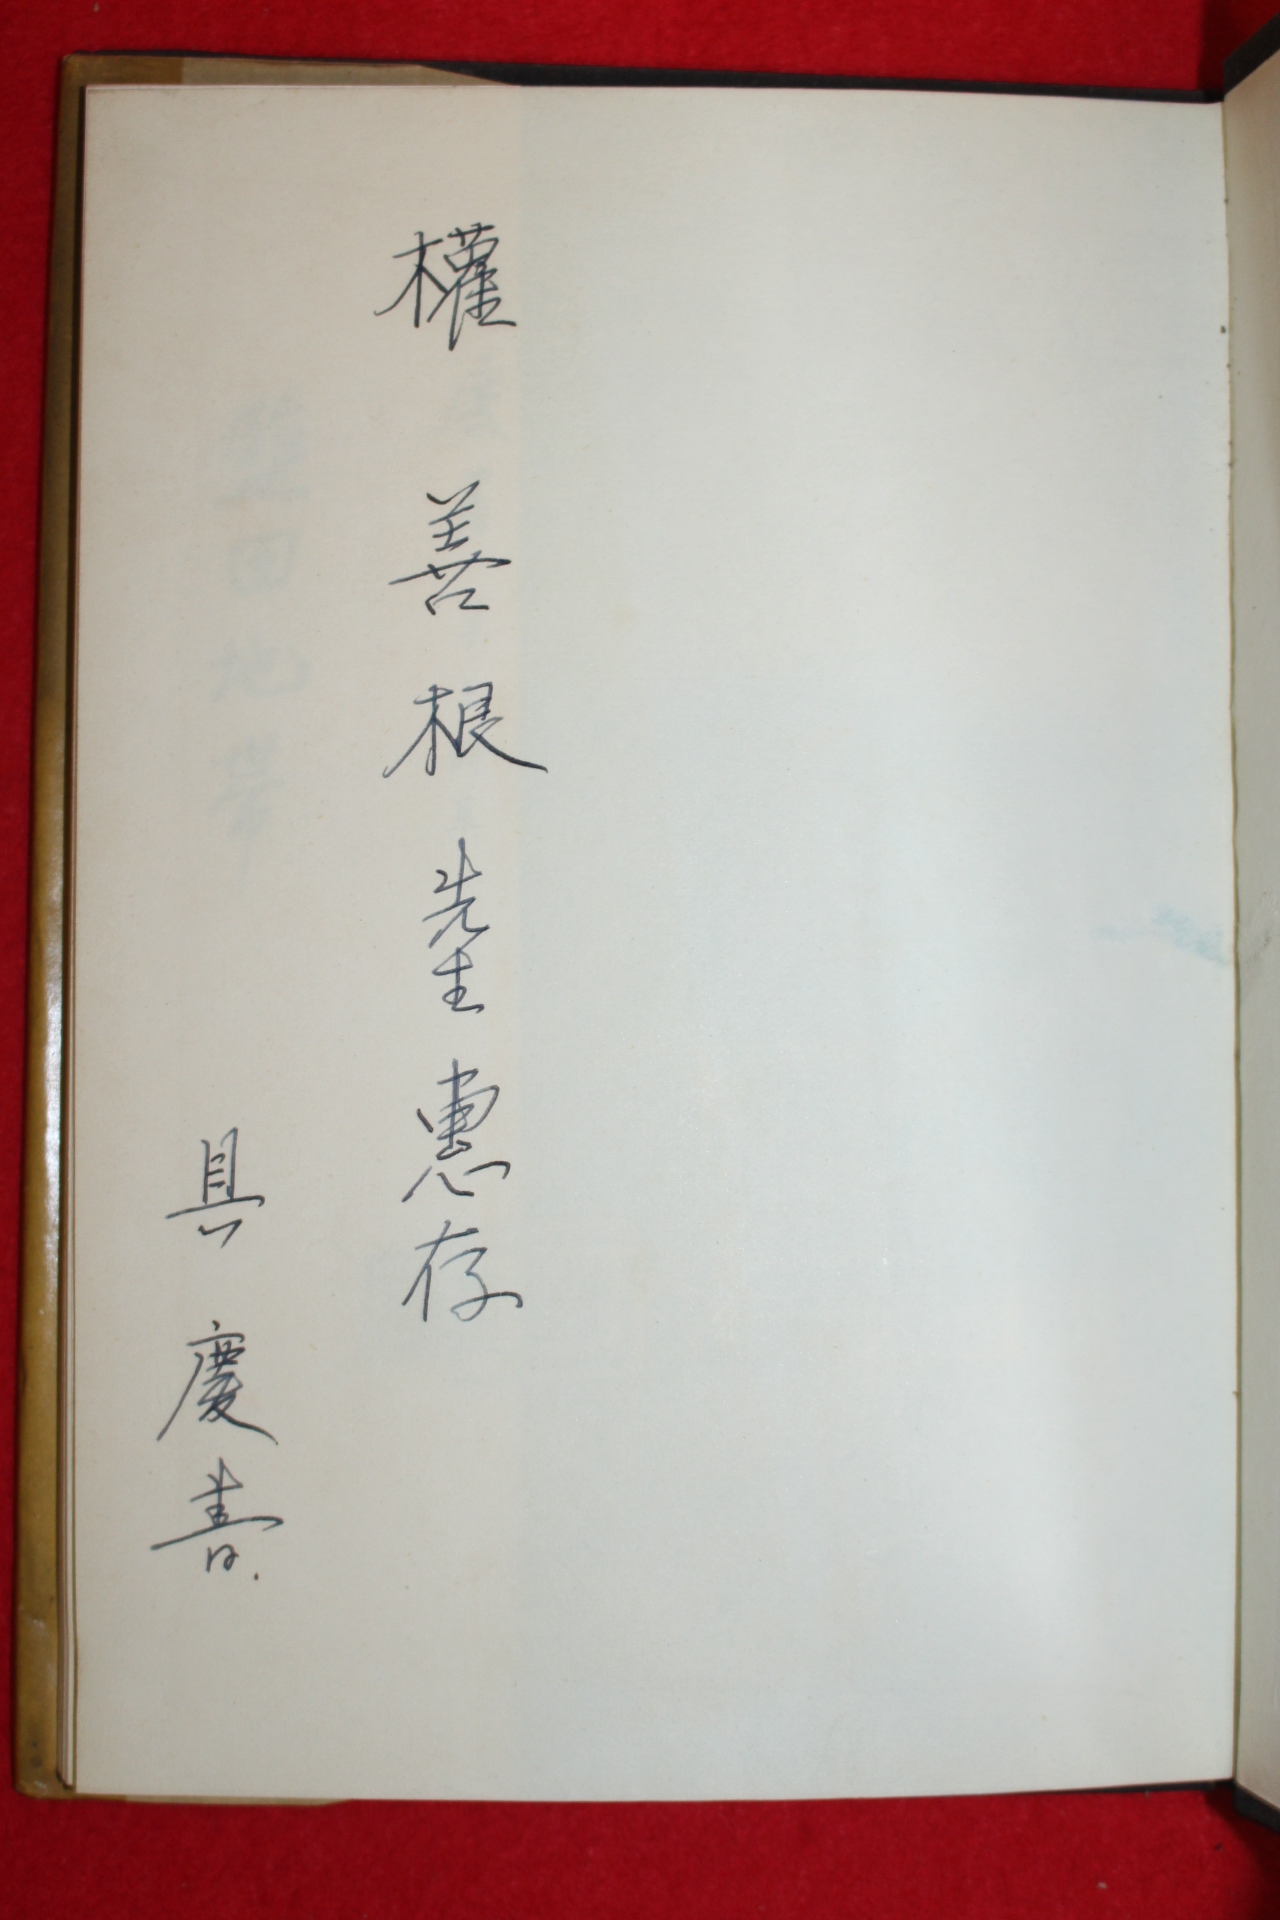 權善根先生惠存
具慶書.